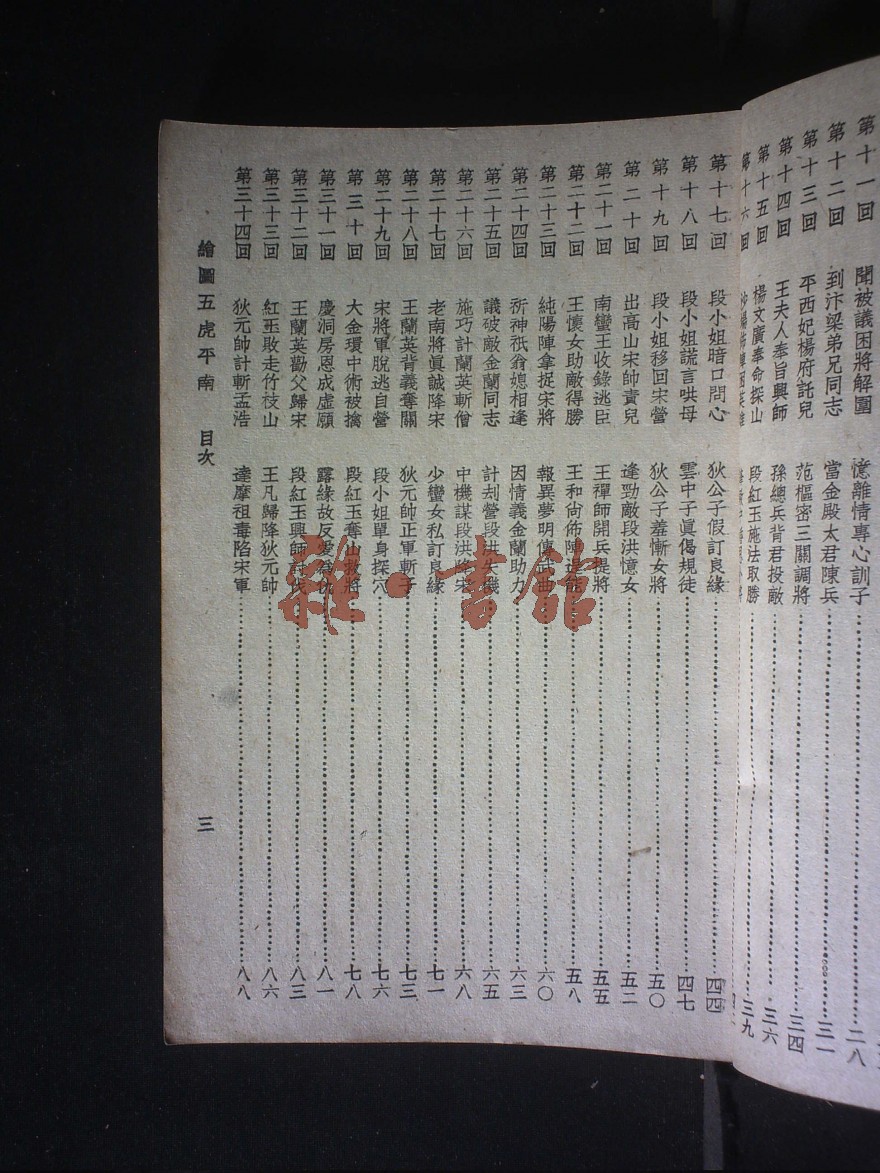 第十一回 聞被議困將解圍 憶離情專心訓子 二八
第十二回 到汴梁弟兄同志 當金殿太君陳兵 三一
第十三回 平西妃楊府託兒 范樞密三關調將 三四
第十四回 王夫人奉旨興師 孫總兵背君投敵 三六
第十五回 楊文廣奉命探山 段紅玉施法取勝 三九
第十六回
第十七回 段小姐暗口問心 狄公子假訂良緣 四四
第十八回 段小姐謊言哄母 雲中子眞傷規徒 四七
第十九回 段小姐移回宋營 狄公子羞慚女將 五〇
第二十回 出高山宋帥責兒 逢勁敵段洪憶女 五二
第二十一回 南蠻王收錄逃臣 王禪師開兵提將 五五
第二十二回 王懷女助敵得勝 王和尙佈陣逞能 五八
第二十三回 純陽陣拿捉宋將 報異夢明傳武曲 六〇
第二十四回 祈神祇翁媳相逢 因情義金蘭助力 六三
第二十五回 議破敵金蘭同志 計刦營段洪失機 六五
第二十六回 施巧計蘭英斬僧 中機謀段洪降宋 六八
第二十七回 老南將眞誠降宋 少蠻女私訂良緣 七一
第二十八回 王蘭英背義奪關 狄元帥正軍斬子 七三
第二十九回 宋將軍脫逃自營 段小姐單身探穴 七六
第三十回 大金環中術被擒 段紅玉奪山救將 七八
第三十一回 慶洞房恩成虛願 露緣故反愛為仇 八一
第三十二回 王蘭英勸父歸宋 段紅玉興師討伐 八三
第三十三回 紅玉敗走竹枝山 王凡歸降狄元帥 八六
第三十四回 狄元帥計斬孟浩 達摩祖毒陷宋軍 八八
繪圖五虎平南 目次 三
雜·書館